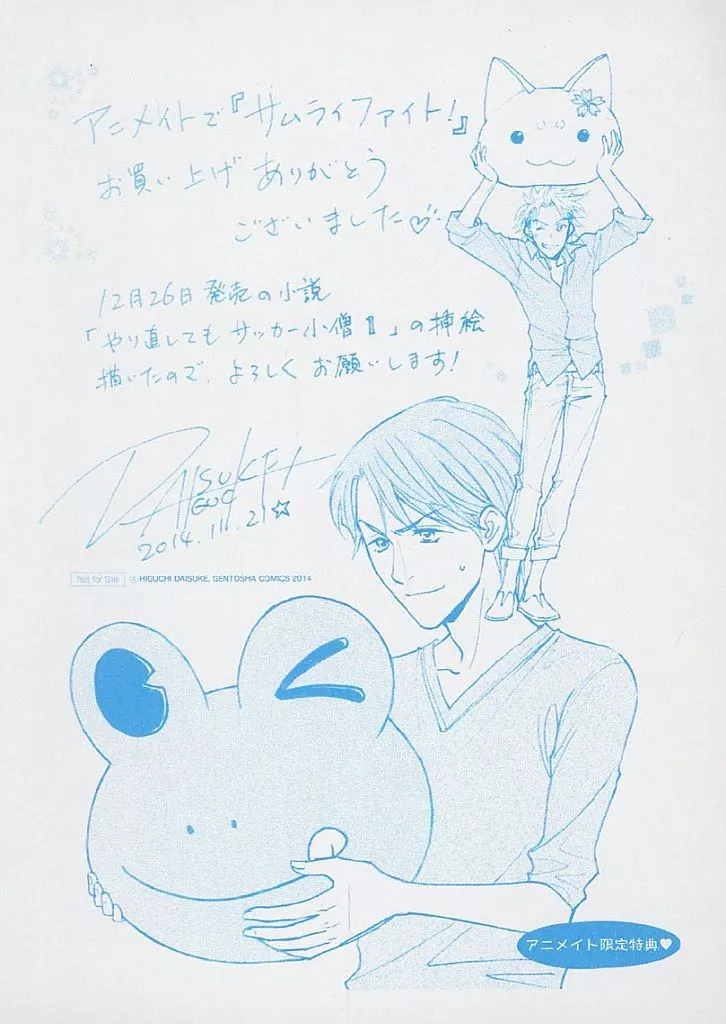 アニメイトで『サムライファイト!』
お買い上げ ありがとう
ございました♡
12月26日 発売の小説
「やり直してもサッカー小僧Ⅱ」の挿絵
描いたので、よろしく お願いします!
DAISUKE HIGUCHI
2014.11.21☆
Not for Sale © HIGUCHI DAISUKE, GENTOSHA COMICS 2014
アニメイト限定特典♥